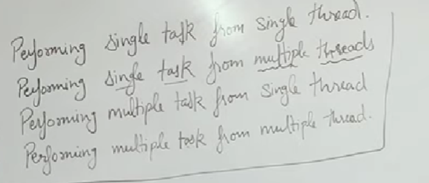 Performing single task from single thread.
Performing single task from multiple threads
Performing multiple task from single thread
Performing multiple task from multiple thread.